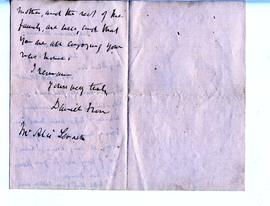 mother, and the rest of the
family, are well, and that
you are all enjoying your
new home.
I remain
Yours very truly
Daniel
Mr Alex